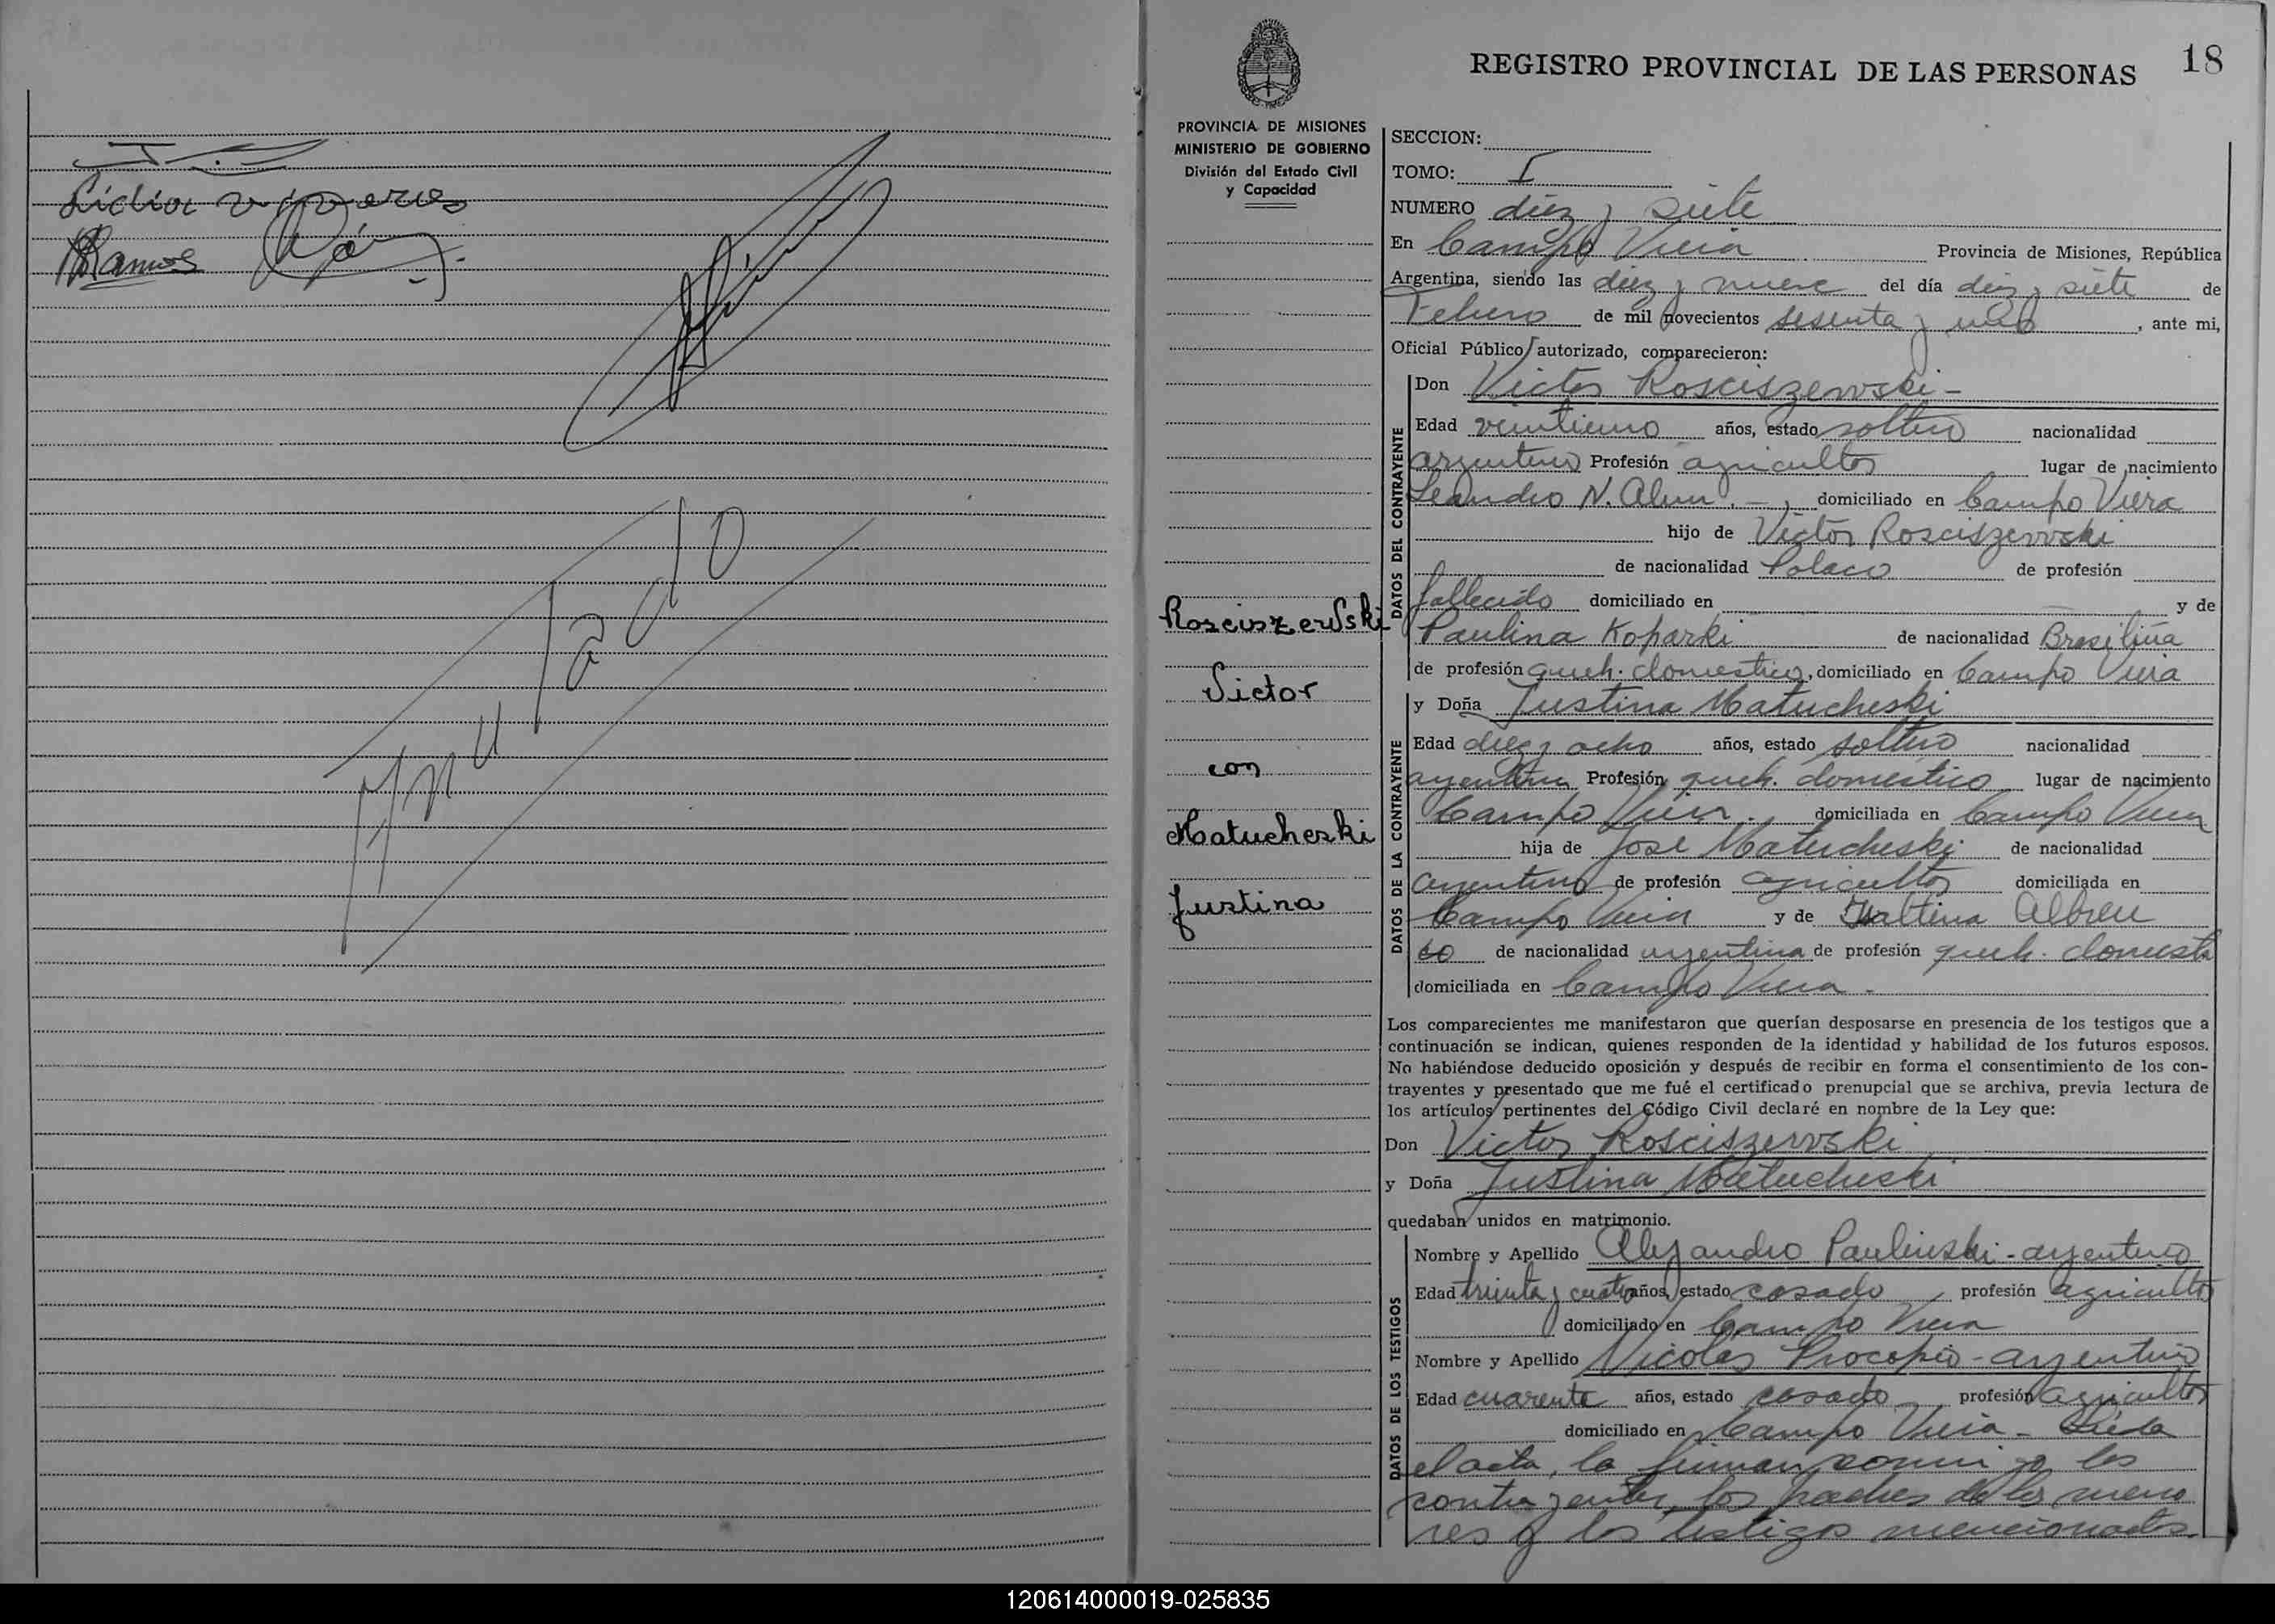 Lidia
Ramos
Inutado
18
REGISTRO PROVINCIAL DE LAS PERSONAS
PROVINCIA DE MISIONES
MINISTERIO DE GOBIERNO
División del Estado Civil
y Capacidad
Rosciszewski
Victor
con
Matucheski
Justina
SECCION:
TOMO: I
NUMERO diez y siete
En Campo Viera Provincia de Misiones, República
Argentina, siendo las diez y nueve del día diez y siete de
Febrero de mil novecientos sesenta y uno, ante mi,
Oficial Público autorizado, comparecieron:
DATOS DEL CONTRAYENTE
Don Victor Rosciszewski -
Edad veintiuno años, estado soltero nacionalidad
argentino Profesión agricultor lugar de nacimiento
Leandro N. Alem. -, domiciliado en Campo Viera
hijo de Victor Rosciszewski
de nacionalidad Polaco de profesión
fallecido domiciliado en y de
Paulina Koparki de nacionalidad Brasileña
de profesión queh. domestico, domiciliado en Campo Viera
DATOS DE LA CONTRAYENTE
y Doña Justina Matucheski
Edad diez y ocho años, estado soltero nacionalidad
argentina Profesión queh. domestico lugar de nacimiento
Campo Viera. domiciliada en Campo Viera
hija de José Matucheski de nacionalidad
argentino de profesión agricultor domiciliada en
Campo Viera y de Albreu
de nacionalidad argentina de profesión queh. domesti
domiciliada en Campo Viera -
Los comparecientes me manifestaron que querían desposarse en presencia de los testigos que a
continuación se indican, quienes responden de la identidad y habilidad de los futuros esposos.
No habiéndose deducido oposición y después de recibir en forma el consentimiento de los con-
trayentes y presentado que me fué el certificado prenupcial que se archiva, previa lectura de
los artículos pertinentes del Código Civil declaré en nombre de la Ley que:
Don Victor Rosciszewski
y Doña Justina Matucheski
quedaban unidos en matrimonio.
DATOS DE LOS TESTIGOS
Nombre y Apellido Alejandro Paulinski - argentino
Edad treinta y cuatro años, estado casado profesión agricultor
domiciliado en Campo Viera
Nombre y Apellido Nicolas Procopio - argentino
Edad cuarenta años, estado casado profesión agricultor
domiciliado en Campo Viera - Leida
el acta, la firman conmigo los
contrayentes, los padres de los meno
res y los testigos mencionados.
120614000019-025835